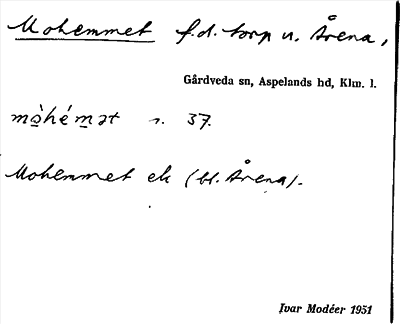 Mohemmet f.d. torp u. Årena,
Gårdveda sn, Aspelands hd, Klm. l.
mo̠̊̀hém̠ət s. 37.
Mohemmet ek (bl. Årena).
Ivar Modéer 1951